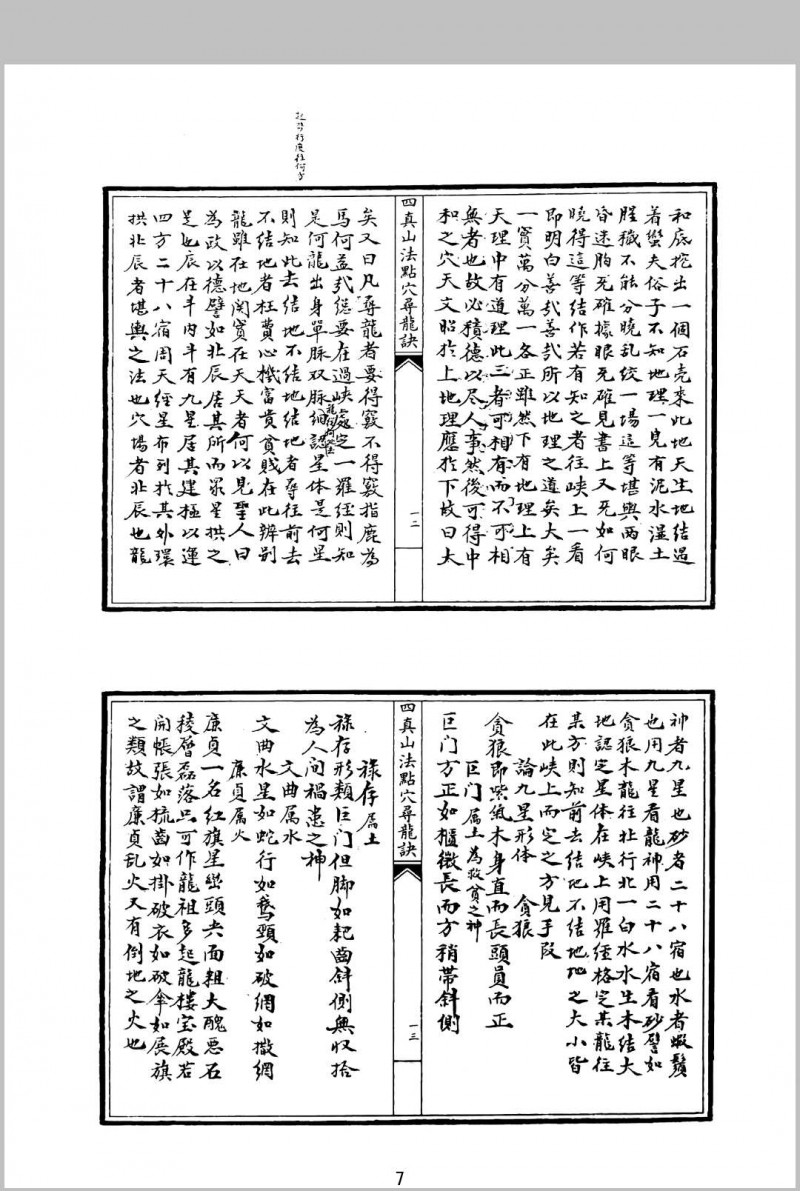 和底挖出一個石壳來此地天生地結遇
着蠻夫俗子不知地理一見有泥水濕土
腥穢不能分曉乱絞一場這等堪輿两眼
昏迷胸死確據眼死確見書上又死如何
曉得這等結作若有知之者往峽上一看
即明白善哉善哉所以地理之道矣大矣
一窾萬分萬一各正雖然下有地理上有
天理中有道理此三者可相有而不可相
無者也故必積德以尽人事然後可得中
和之穴天文昭於上地理應於下故曰大
四真山法點穴尋龍訣
一二
矣又曰凡尋龍者要得竅不得竅指鹿為
馬何益哉總要在過峽處定一羅經則知
是何龍出身單脉双脉細認星体是何星
則知此去結地不結地結地者尋往前去
不結地者枉費心機富貴貧賤在此辨别
龍雖在地閞竅在天天者何以見聖人曰
為政以德譬如北辰居其所而眾星拱之
是也辰在斗内斗有九星居其建極以運
四方二十八宿周天經星布列於其外環
拱北辰者堪輿之法也穴場者北辰也龍
神者九星也砂者二十八宿也水者蝦鬚
也用九星看龍神用二十八宿看砂譬如
貪狼木龍往北行北一白水水生木結大
地認定星体在峽上用羅經格定某龍往
某方則知前去結地不結地地之大小皆
在此峽上而定之方見手段
論九星形体　貪狼
貪狼即紫氣木身直而長頭員而正
巨门属土為救貧之神
巨门方正如櫃微長而方稍带斜側
四真山法點穴尋龍訣
一三
祿存属土
祿存形類巨门但脚如耙齒斜側無收拾
為人间禍患之神
文曲属水
文曲水星如蛇行如鵞頸如破網如撒網
廉貞属火
廉貞一名紅旗星巒頭尖面粗大醜恶石
稜層磊落只可作龍祖多起龍樓宝殿若
開帳張如梳齒如掛破衣如破傘如展旗
之類故謂廉貞乱火又有倒地之火也
7